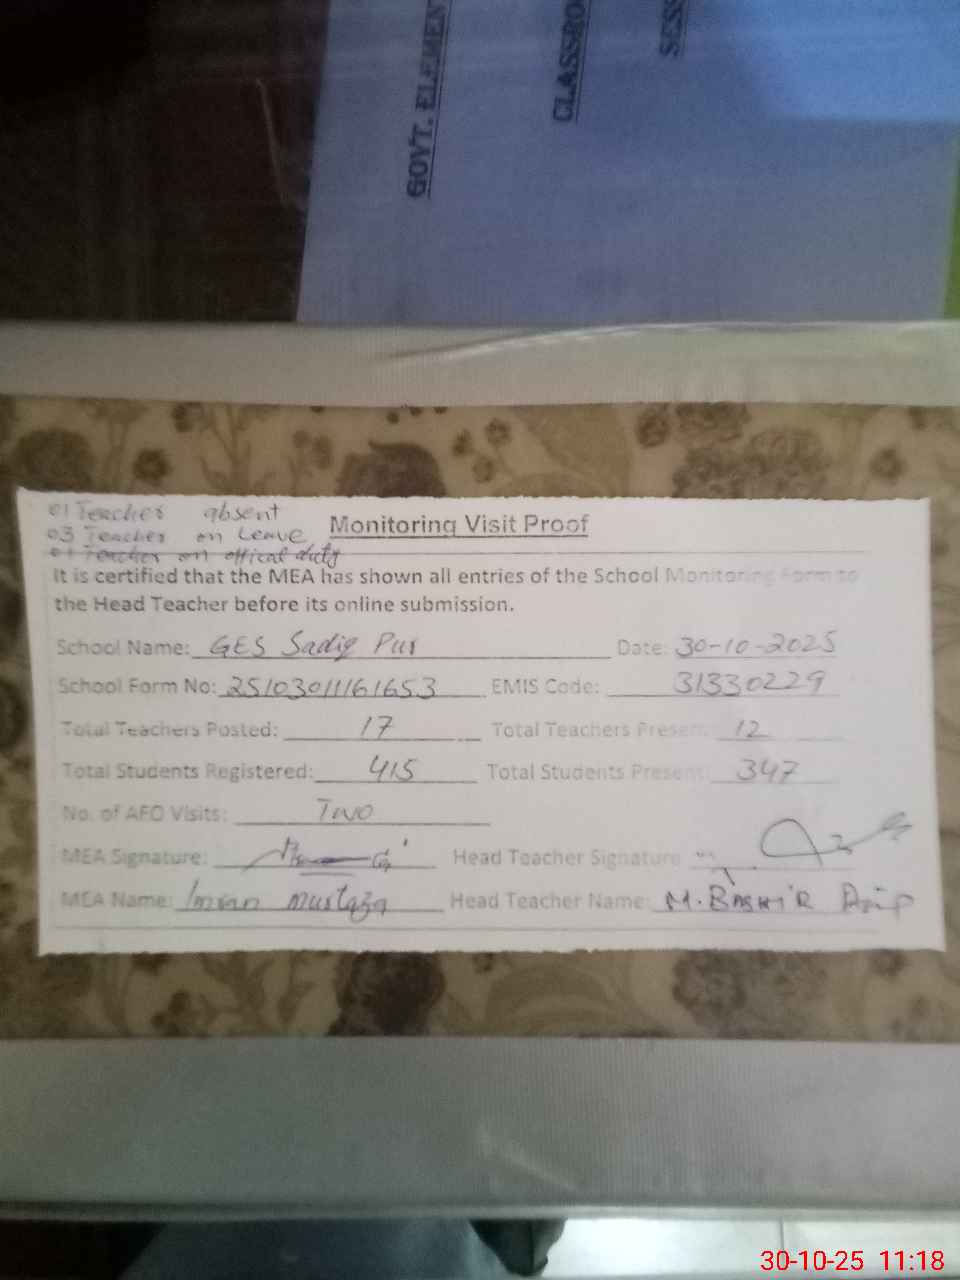 GOVT. ELEMEN
CLASSROO
SESS
01 Teacher absent
03 Teacher on Leave
01 Teacher on offical duty
Monitoring Visit Proof
It is certified that the MEA has shown all entries of the School Monitoring Form to
the Head Teacher before its online submission.
School Name: GES Sadiq Pur Date: 30-10-2025
School Form No: 25103011161653 EMIS Code: 31330229
Total Teachers Posted: 17 Total Teachers Present: 12
Total Students Registered: 415 Total Students Present: 347
No. of AEO Visits: Two
MEA Signature: Head Teacher Signature
MEA Name: Imran Murtaza Head Teacher Name: M. BASHIR
30-10-25 11:18